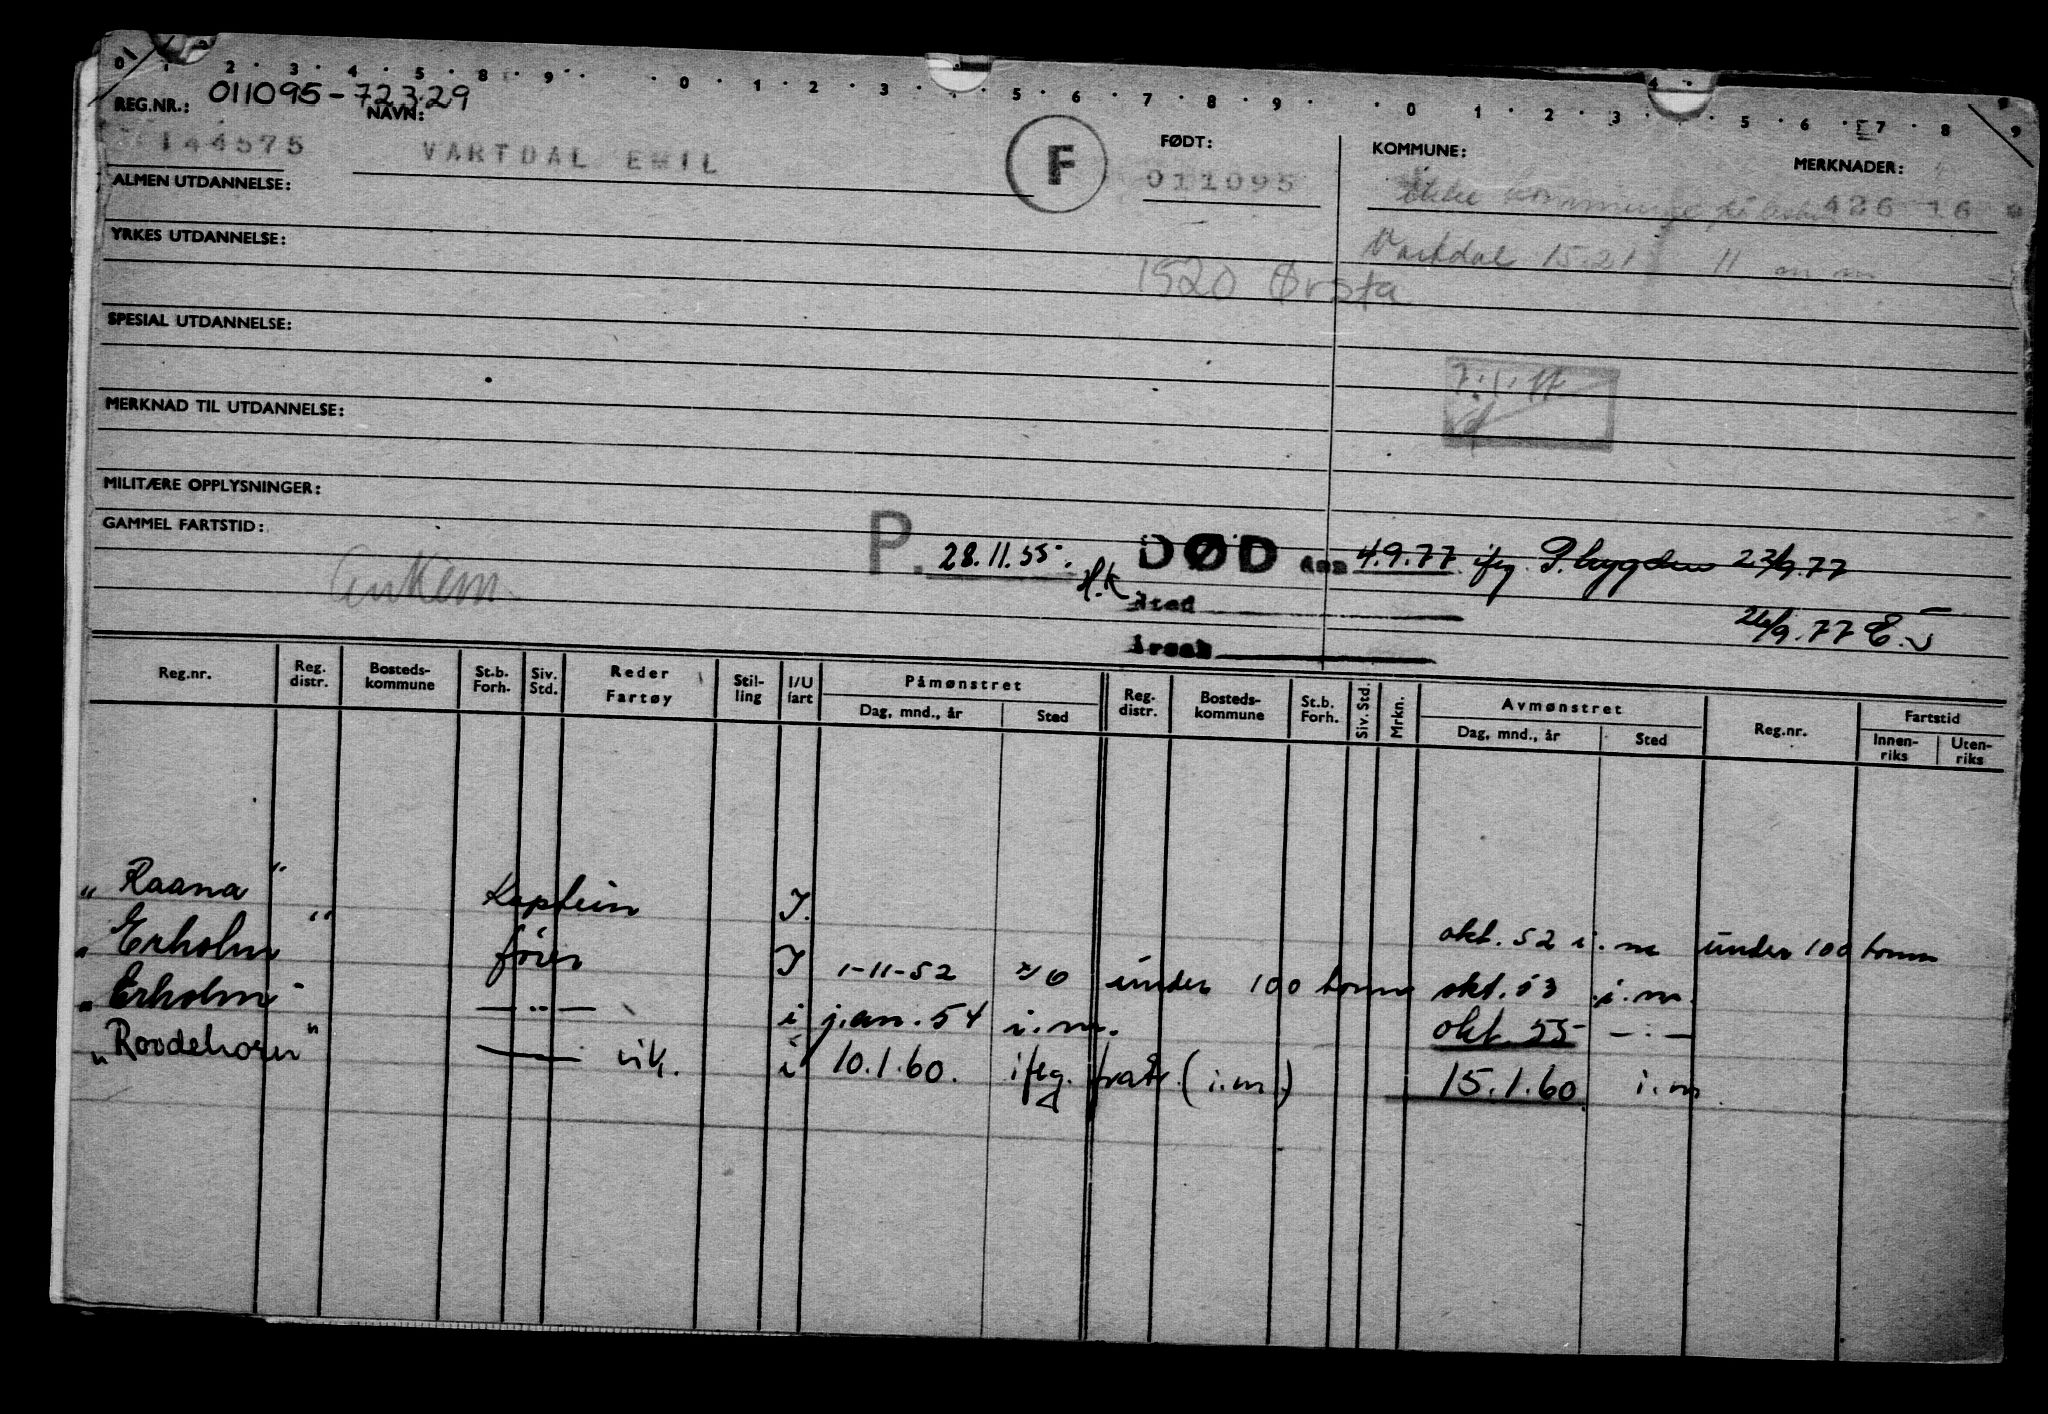 0 1 2 . 3 . 4 . 5 . 8 . 9 . . 0 . 1 . 2 . 3 . . 5 . 6 . 7 . 8 . 9 . . 0 1 . 2 . 3 . 4 . 5 . 6 . 7 . 8 . 9
REG.NR.: 011095-72329 NAVN: FØDT: KOMMUNE: MERKNADER:
144575 VARTDAL EMIL F 011095 ikke kommune 426 16
ALMEN UTDANNELSE:
YRKES UTDANNELSE: Vartdal 15.21 11
1520 Ørsta
SPESIAL UTDANNELSE:
MERKNAD TIL UTDANNELSE:
MILITÆRE OPPLYSNINGER:
GAMMEL FARTSTID: P. 28.11.55. H.K DØD den 4.9.77. ifg. P. bygden 23/9.77
Sted 26/9.77 E.
årsak
Reg.nr. Reg. distr. Bosteds-kommune St.b. Forh. Siv. Std. Reder Fartøy Stil-ling I/U fart Påmønstret Dag, mnd., år Sted Reg. distr. Bosteds-kommune St.b. Forh. Siv. Std. Mrkn. Avmønstret Dag, mnd., år Sted Reg.nr. Fartstid Innen-riks Uten-riks
"Raana" Kaptein I. okt. 52 i.m under 100 tonn
"Erholm" fører I 1-11-52 under 100 tonn okt. 53 i.m.
"Erholm" — " — i jan. 54 i.m. okt 55 — : —
"Rovdehorn" —— vik. i 10.1.60. ifg. (i.m.) 15.1.60 i.m